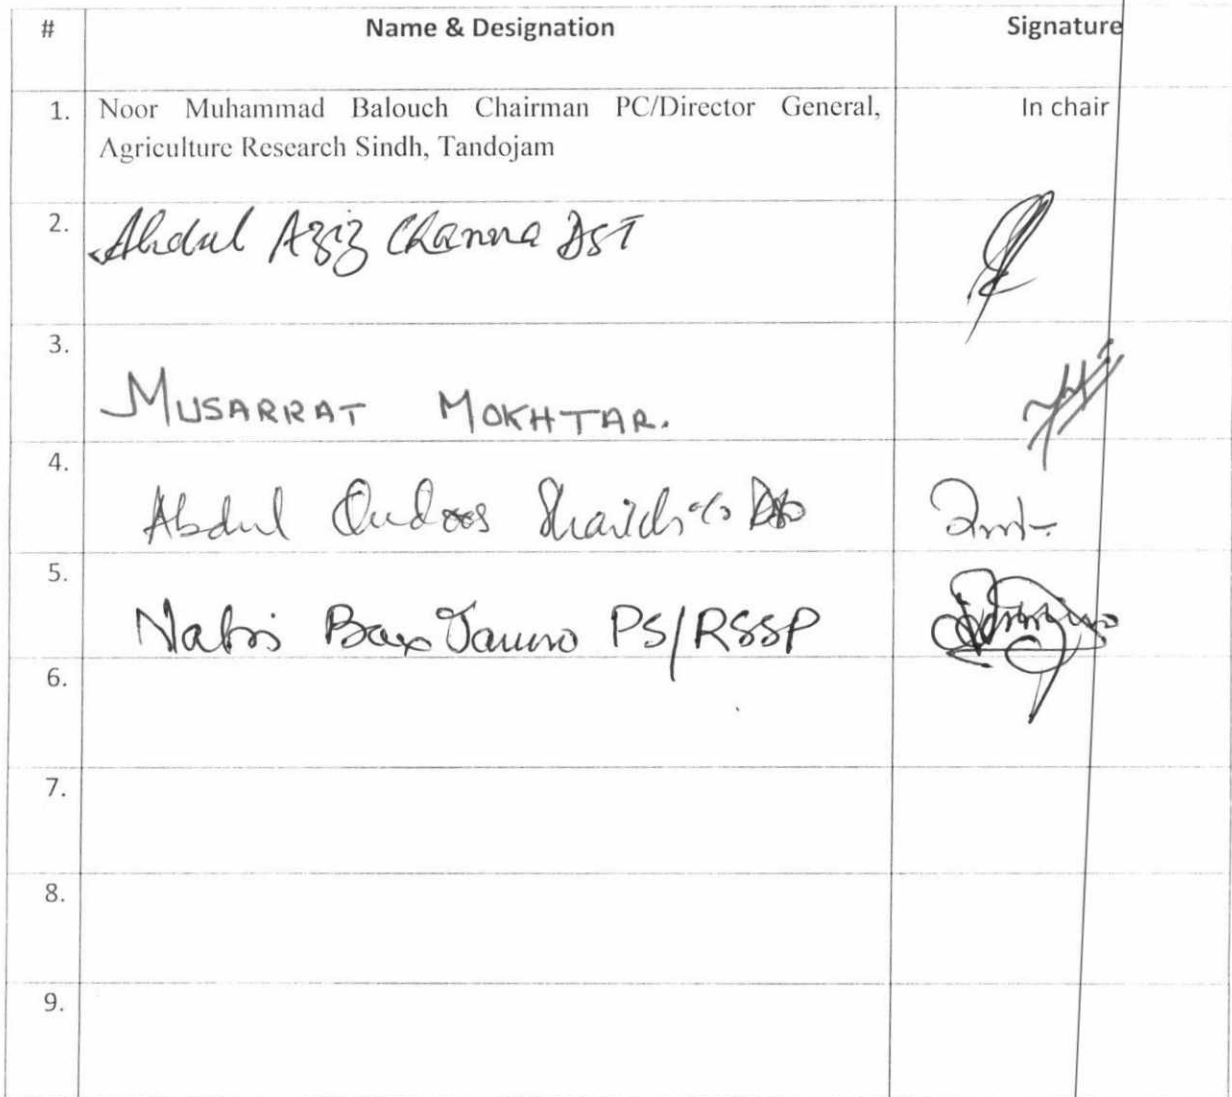 # Name & Designation Signature
1. Noor Muhammad Balouch Chairman PC/Director General, In chair
Agriculture Research Sindh, Tandojam
2. Abdul Aziz Channa DST
3.
MUSARRAT MOKHTAR.
4.
Abdul Qudoos Shaikh
5.
Nabi Bax Jamro PS/RSSP
6.
7.
8.
9.